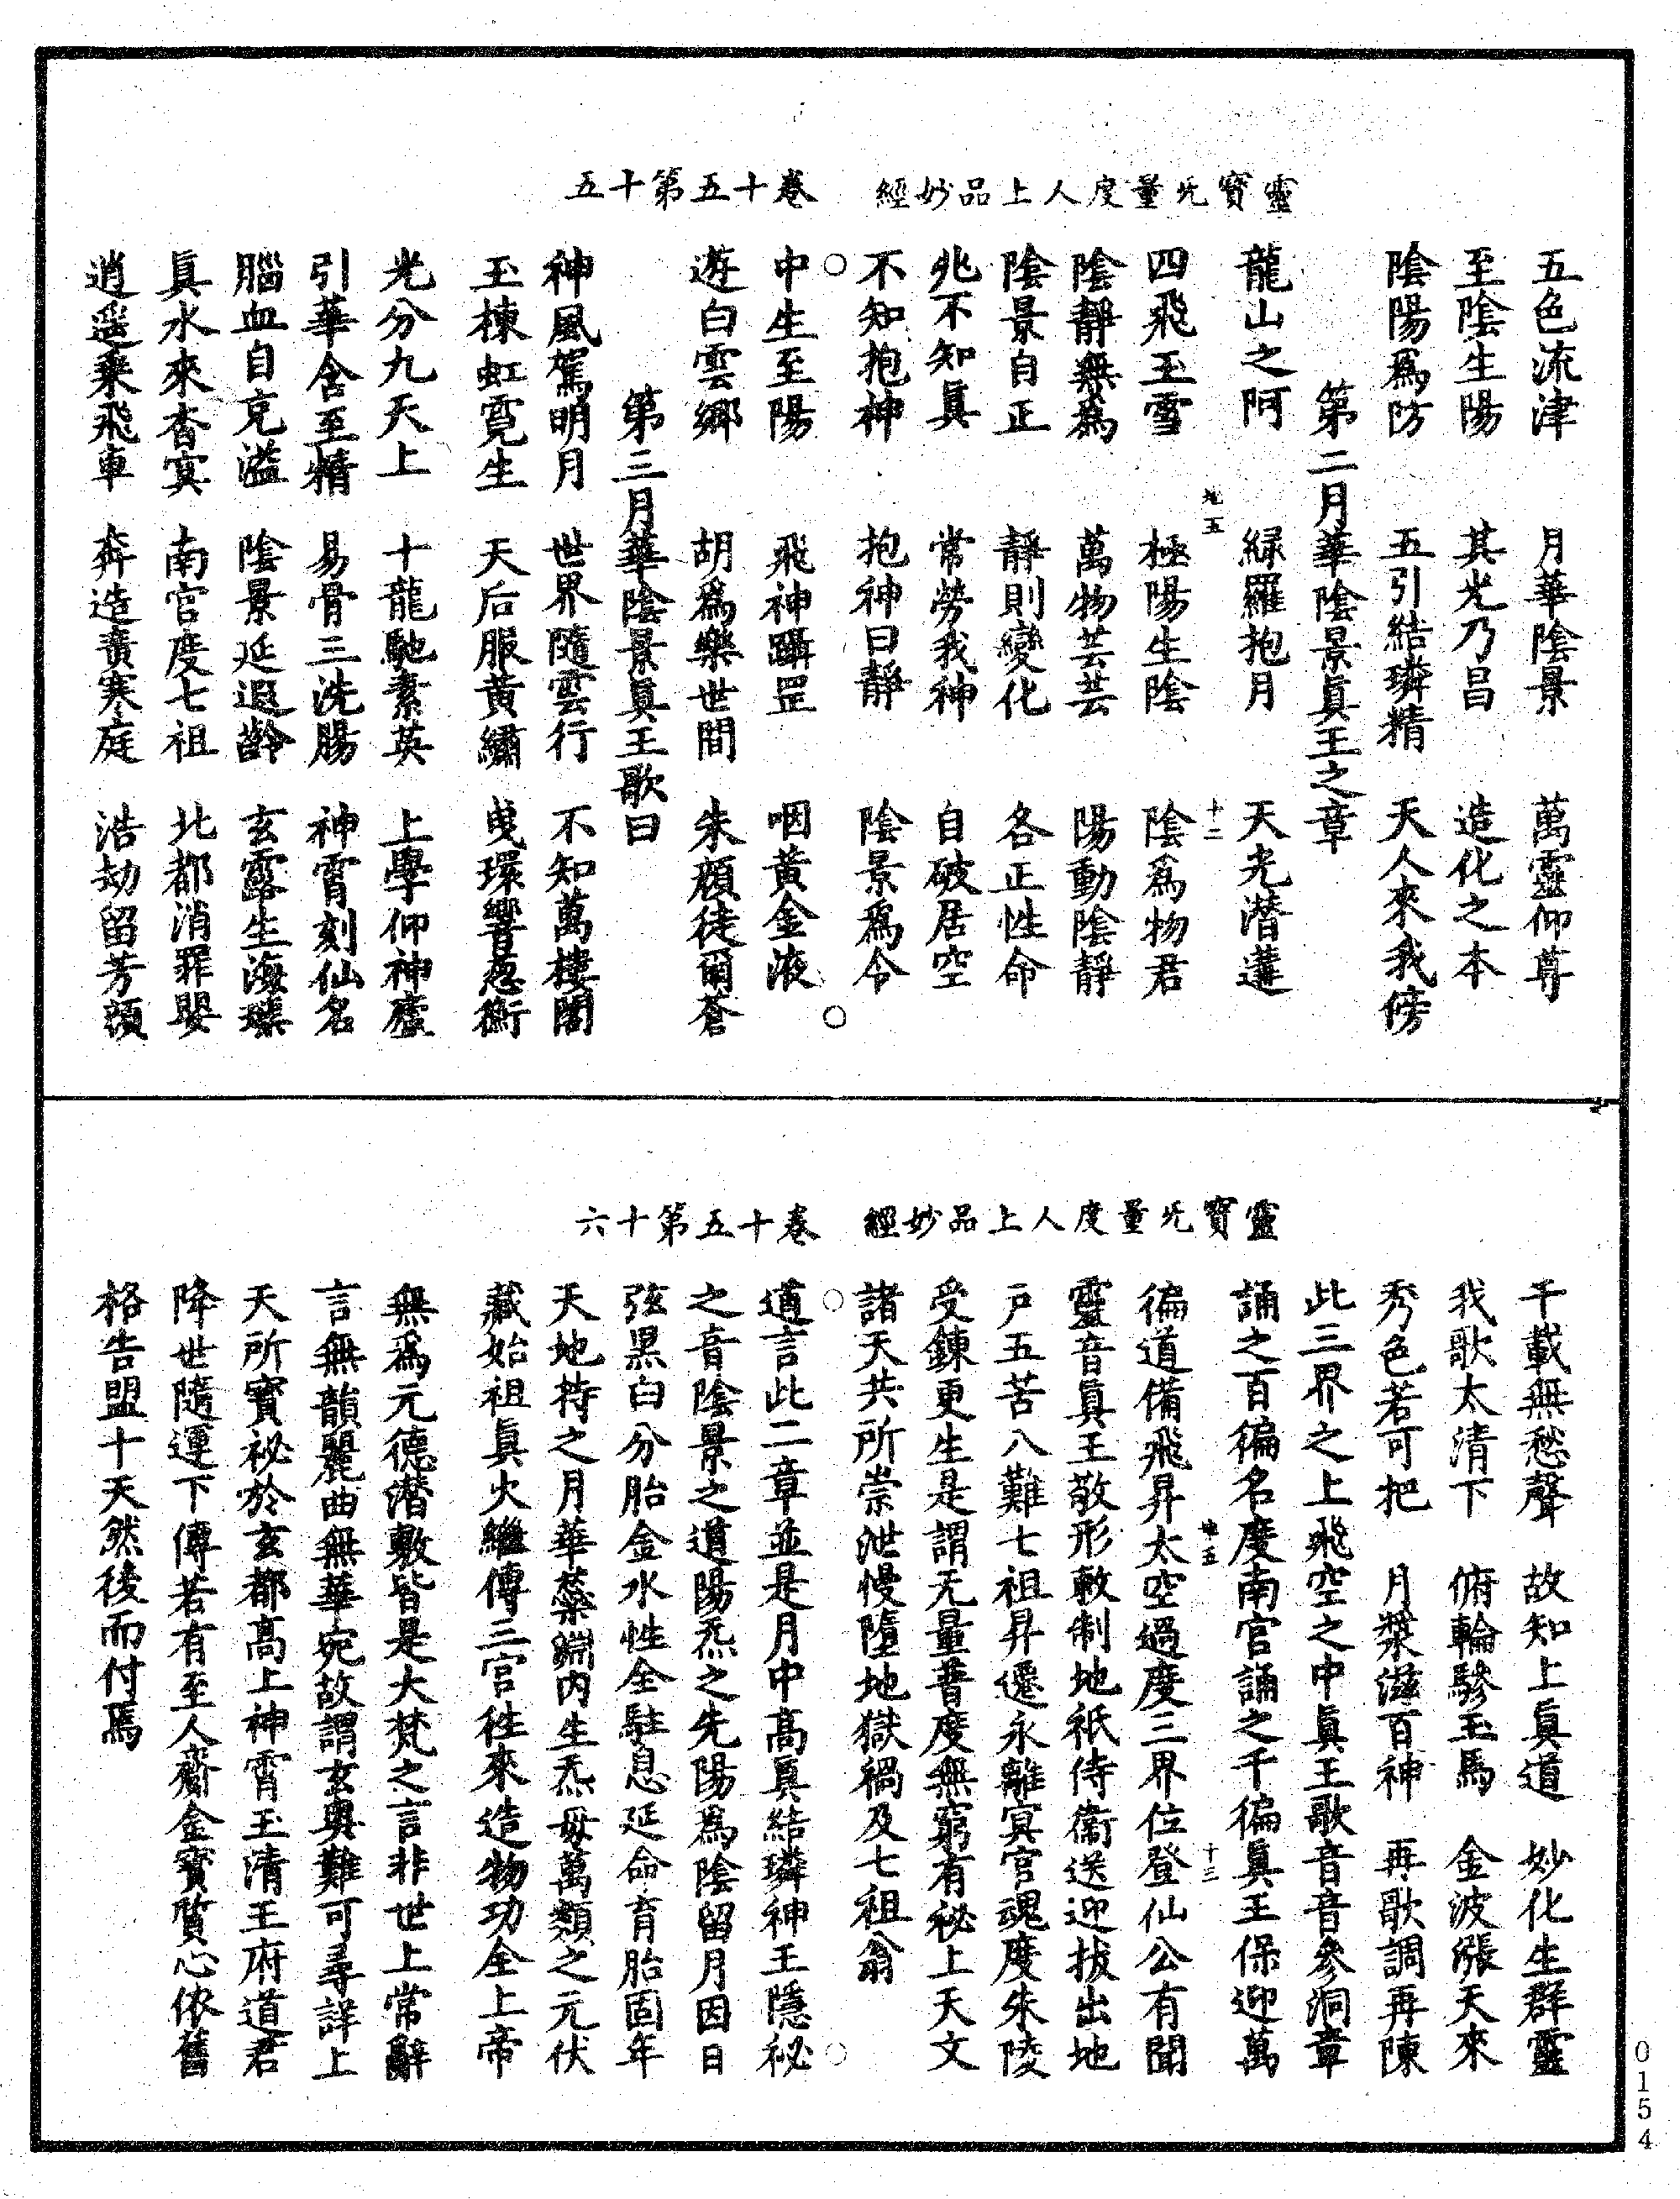 靈寶无量度人上品妙經　卷十五第十五
五色流津　月華陰景　萬靈仰尊
至陰生陽　其光乃昌　造化之本
陰陽爲防　五引結璘精　天人來我傍
第二月華陰景真王之章
龍山之阿　綠羅抱月　天光潜蓮
地五　十二
四飛玉雪　極陽生陰　陰爲物君
陰靜無爲　萬物芸芸　陽動陰靜
陰景自正　靜則變化　各正性命
兆不知真　常勞我神　自破居空
不知抱神　抱神曰靜　陰景爲令
中生至陽　飛神躡罡　咽黃金液
遊白雲鄉　胡爲樂世間　朱顔徒爾蒼
第三月華陰景真王歌曰
神風駕明月　世界隨雲行　不知萬樓閣
玉棟虹霓生　天后服黃繡　曵環響葱衡
光分九天上　十龍馳素英　上學仰神麾
引華含至精　易骨三洗腸　神霄刻仙名
腦血自克溢　陰景延遐齡　玄露生海璘
真水來杳冥　南宮度七祖　北都消罪嬰
逍遥乘飛車　奔造廣寒庭　浩劫留芳頴
靈寶无量度人上品妙經　卷十五第十六
千載無愁聲　故知上真道　妙化生群靈
我歌太清下　俯輪驂玉馬　金波漲天來
秀色若可把　月漿滋百神　再歌調再陳
此三界之上飛空之中真王歌音音參洞章
誦之百徧名度南宮誦之千徧真王保迎萬
地五　十三
徧道備飛昇太空過度三界位登仙公有聞
靈音真王敬形敕制地祇侍衞送迎拔出地
戸五苦八難七祖昇遷永離冥官魂度朱陵
受鍊更生是謂无量普度無窮有秘上天文
諸天共所崇泄慢墮地獄禍及七祖翁
道言此二章並是月中高真結璘神王隱祕
之音陰景之道陽炁之先陽爲陰留月因日
弦黑白分胎金水性全駐息延命育胎固年
天地持之月華蘂淵内生炁母萬類之元伏
藏始祖真火繼傳三宮徃來造物功全上帝
無爲元德潜敷皆是大梵之言非世上常辭
言無韻麗曲無華宛故謂玄奥難可尋詳上
天所寶祕於玄都高上神霄玉清王府道君
降世隨運下傳若有至人齋金寶質心依舊
格告盟十天然後而付焉
0154